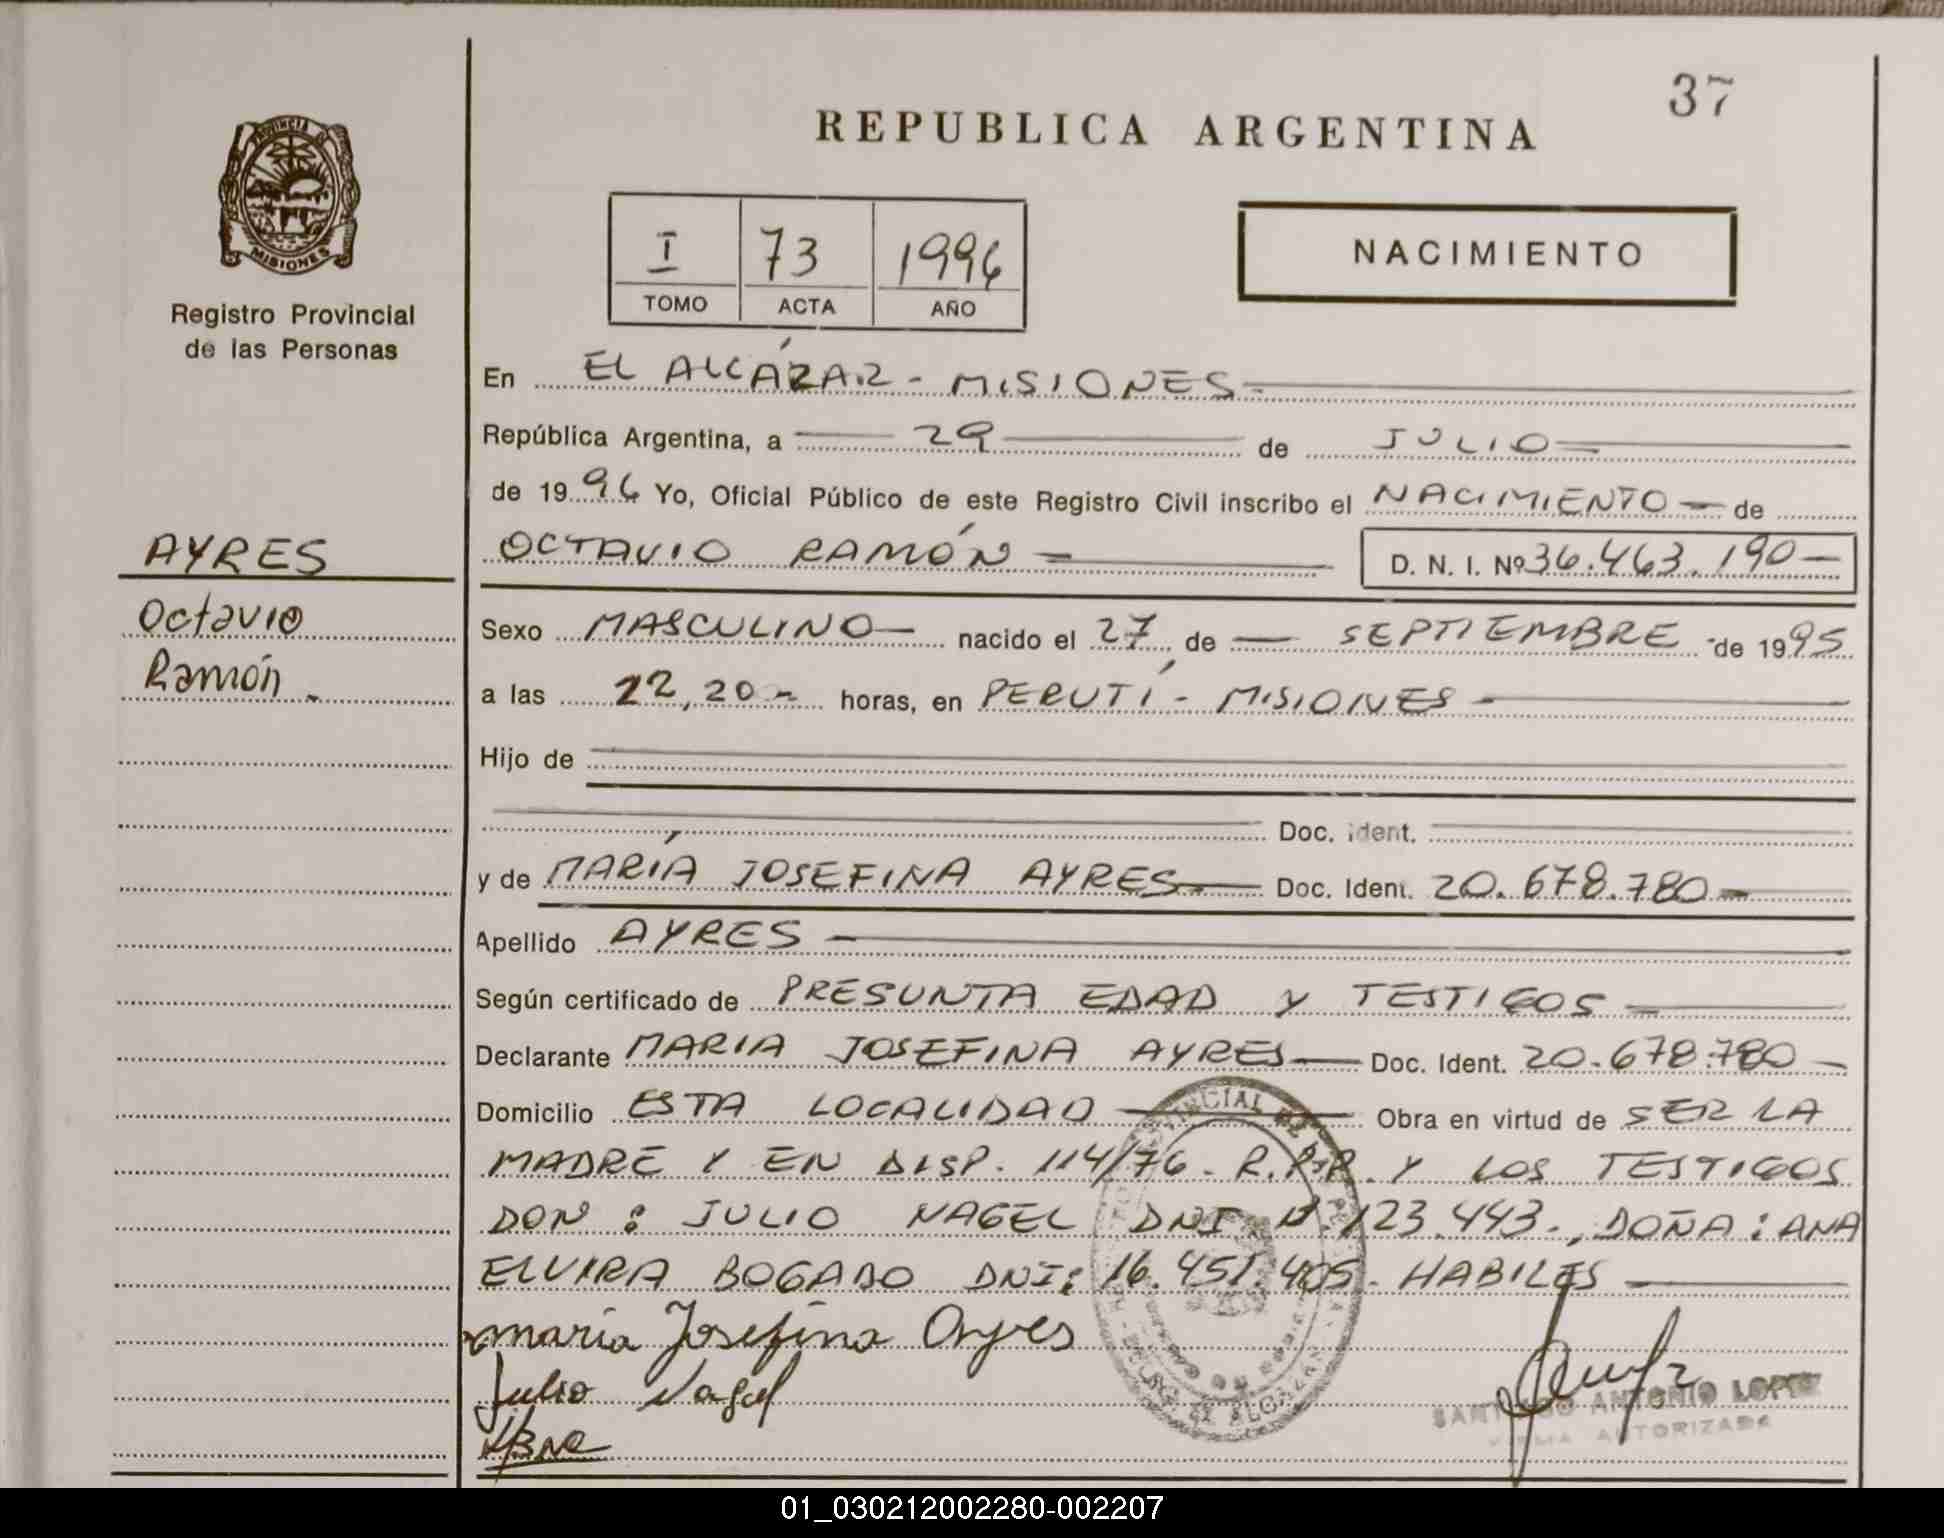 37
REPUBLICA ARGENTINA
PROVINCIA DE
MISIONES
Registro Provincial
de las Personas
I 73 1996
TOMO ACTA AÑO
NACIMIENTO
En EL ALCÁZAR - MISIONES
República Argentina, a 29 de JULIO
de 1996 Yo, Oficial Público de este Registro Civil inscribo el NACIMIENTO de
AYRES
OCTAVIO RAMÓN D. N. I. Nº 36.463.190
Octavio
Ramón.
Sexo MASCULINO nacido el 27 de SEPTIEMBRE de 1995
a las 22,20 horas, en PERUTÍ - MISIONES
Hijo de
Doc. ident.
y de MARÍA JOSEFINA AYRES Doc. Ident. 20.678.780
Apellido AYRES
Según certificado de PRESUNTA EDAD Y TESTIGOS
Declarante MARIA JOSEFINA AYRES Doc. Ident. 20.678.780
Domicilio ESTA LOCALIDAD Obra en virtud de SER LA
MADRE Y EN DISP. 114/76. R.P.P. Y LOS TESTIGOS
DON: JULIO NAGEL DNI Nº 123.443., DOÑA: ANA
ELVIRA BOGADO DNI: 16.451.405. HABILES
maria Josefina Ayres
Julio Nagel
SANTIAGO ANTONIO LOPEZ
AUTORIZADA
01_030212002280-002207